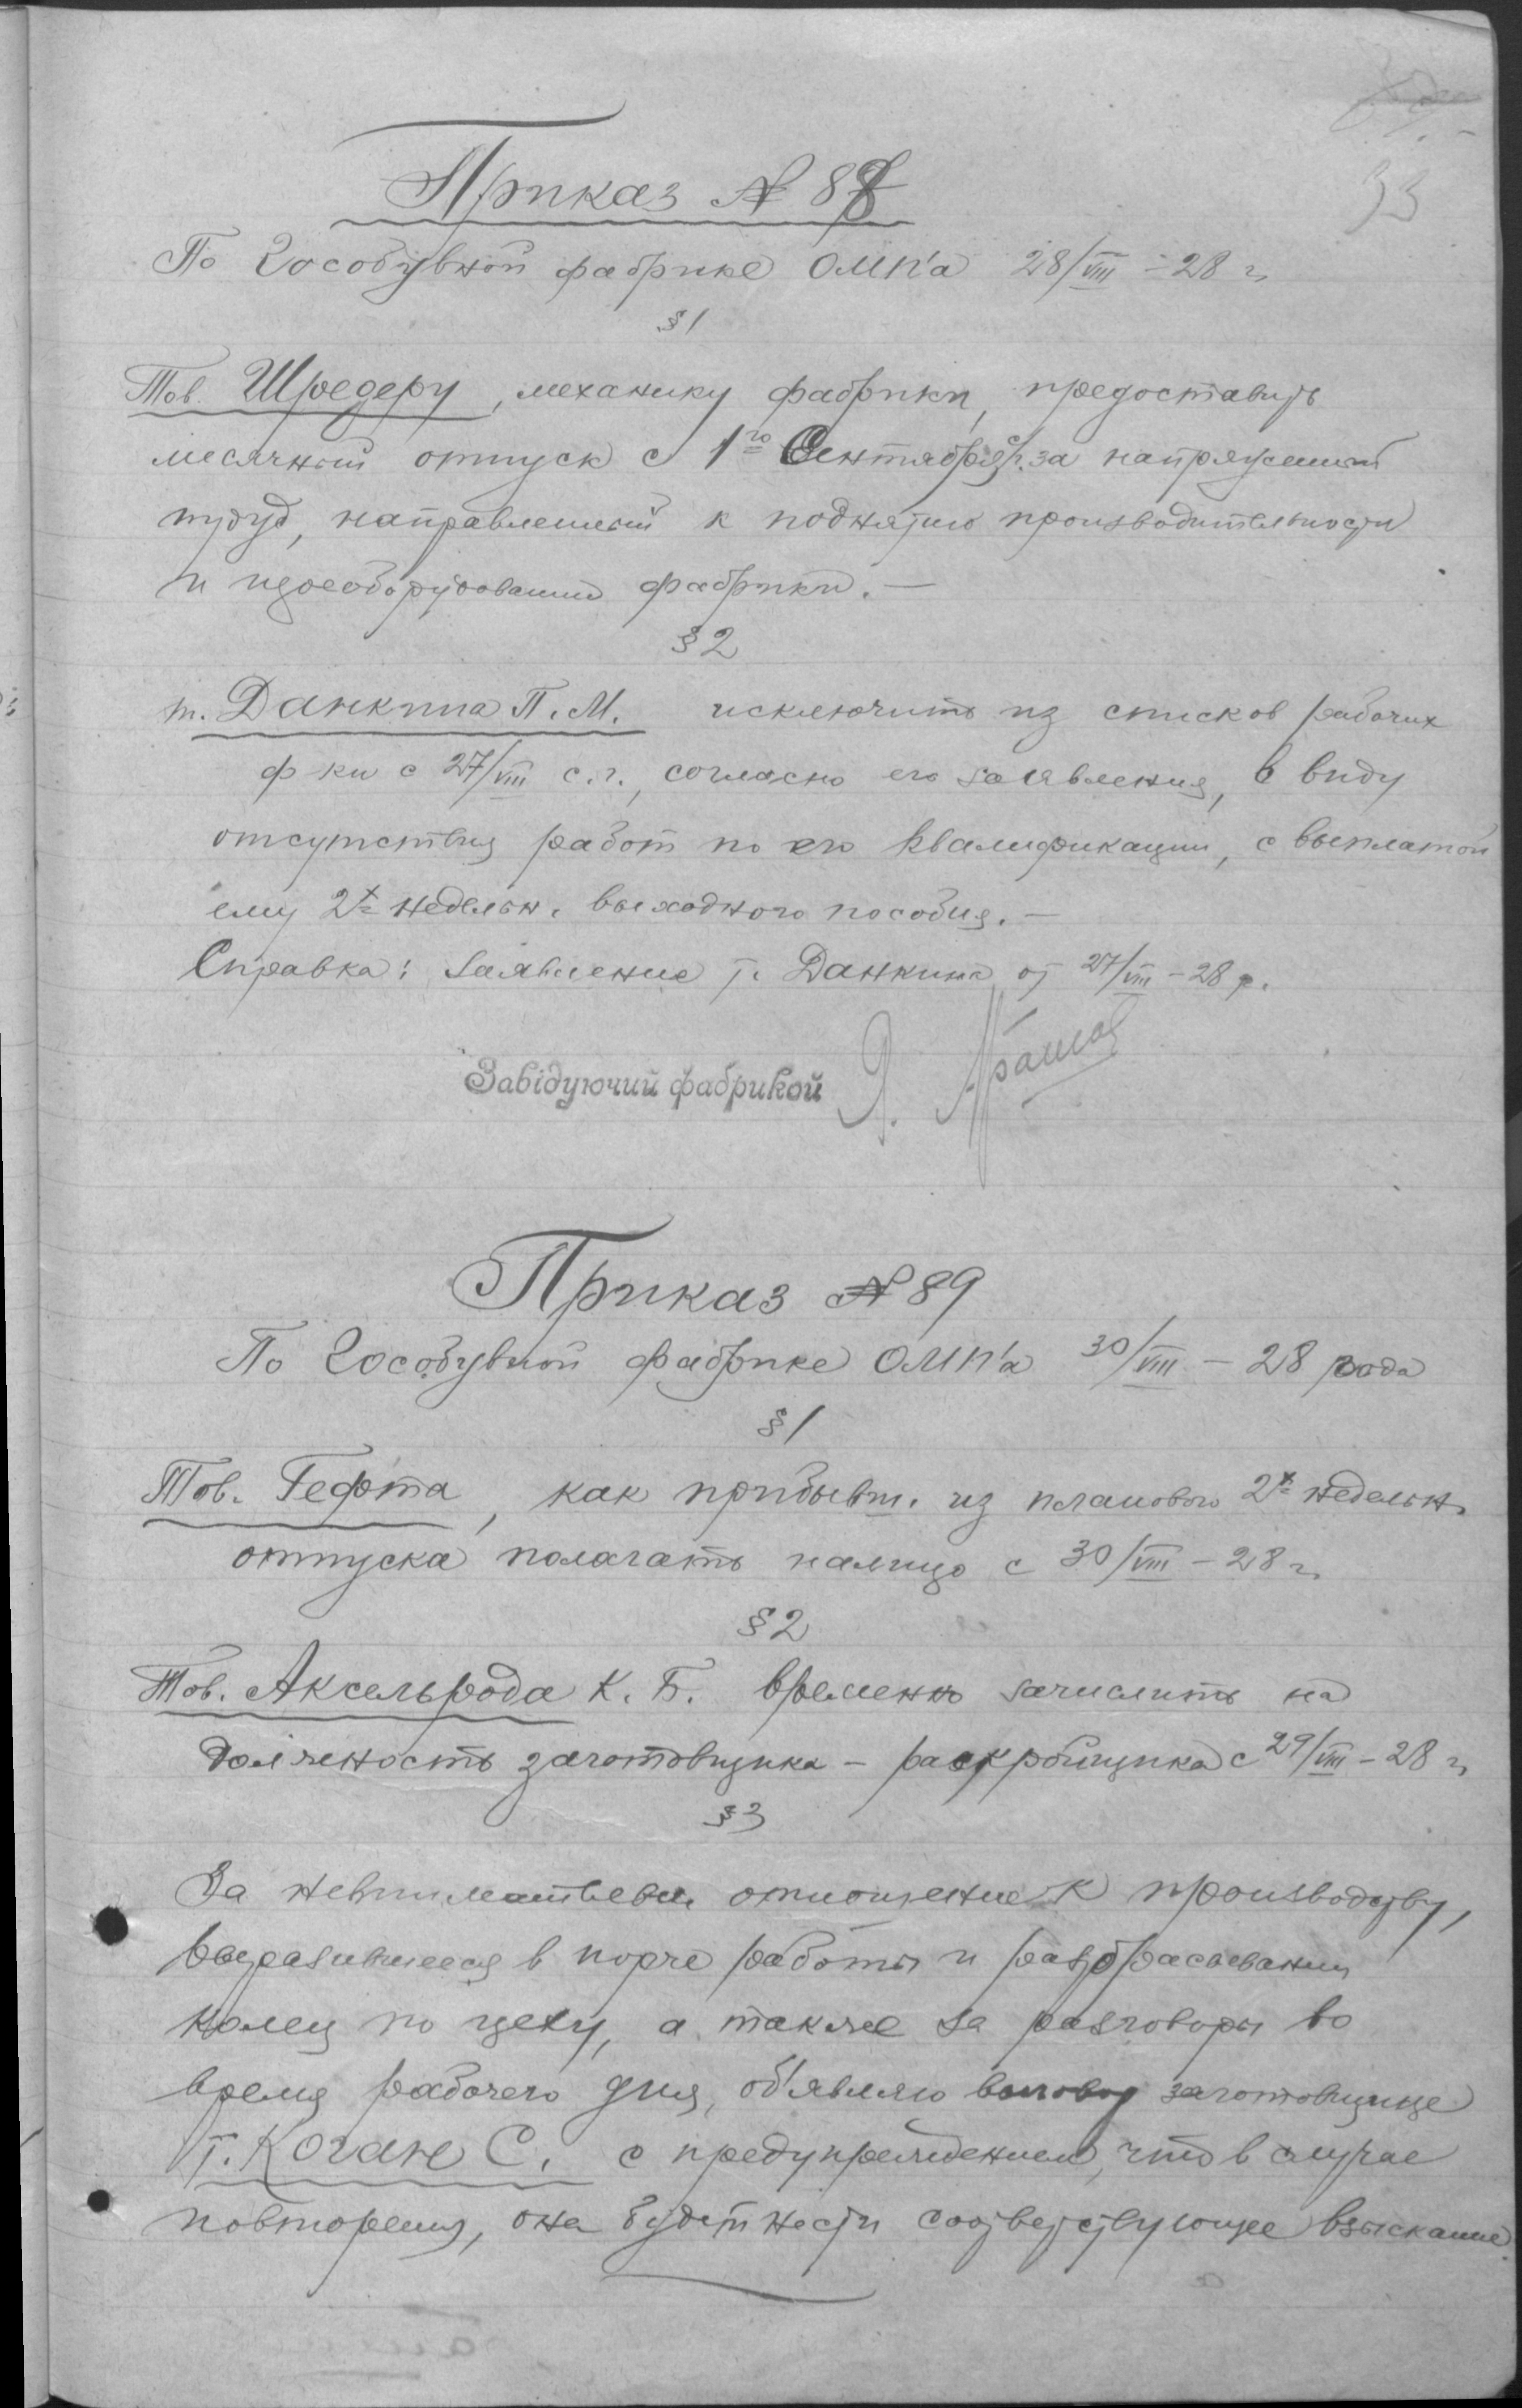 33
Приказ № 88
По Гособувной фабрике ОМК'а 28/VIII - 28 г.
§ 1
Тов. Шредеру, механику фабрики, предоставить
месячный отпуск с 1го Сентября с.г. за напряженный
труд, направленный к поднятию производительности
и переоборудованию фабрики. —
§ 2
т. Данкина П. М. исключить из списков рабочих
ф-ки с 27/VIII с. г., согласно его заявления, в виду
отсутствия работ по его квалификации, с выплатой
ему 2х недельн. выходного пособия. —
Справка: Заявление т. Данкина от 27/VIII - 28 г.
Завідуючий фабрикой
Приказ № 89
По Гособувной фабрике ОМК'а 30/VIII - 28 года
§ 1
Тов. Гефта, как прибывш. из планового 2х недельн.
отпуска полагать налицо с 30/VIII - 28 г.
§ 2
Тов. Аксельрода К. Б. временно зачислить на
должность заготовщика - раскройщика с 29/VIII - 28 г.
§ 3
За невнимательн. отношение к производству,
выразившееся в порче работы и разбрасывании
колец по цеху, а также за разговоры во
время рабочего дня, об'являю выговор заготовщице
т. Коган С. с предупреждением, что в случае
повторения, она будет нести соответствующее взыскание.